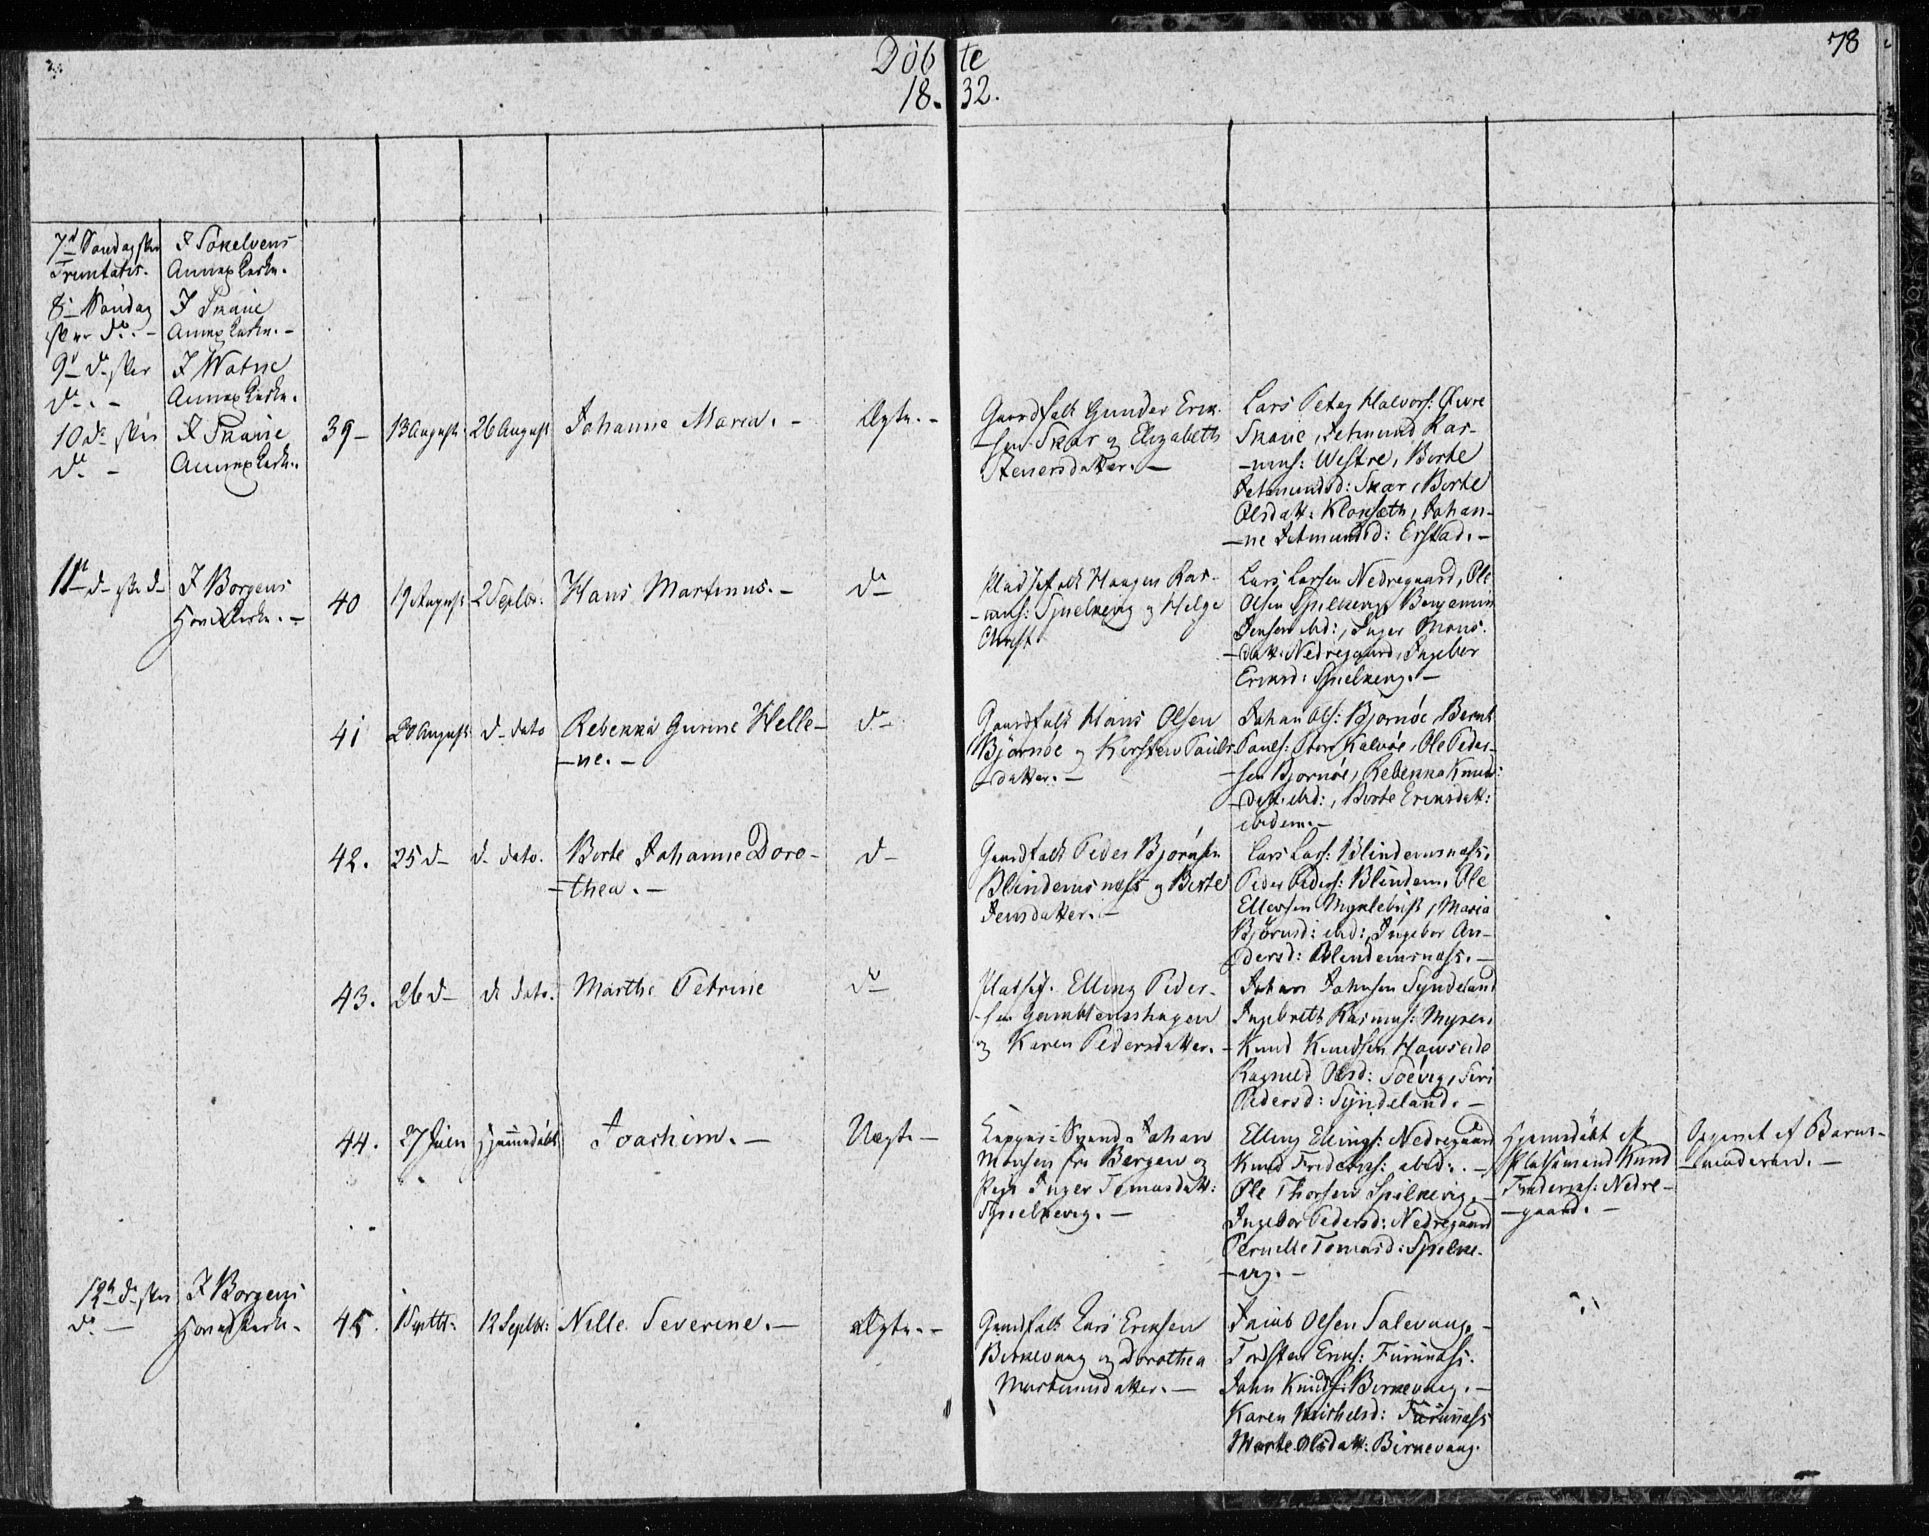 Döbte
1832.
78
7d Söndag efter
Trinitatis.
I Sökelvens
Annexkirke.
8d Söndag
efter do. -
I Skaue
Annexkirke. -
9d do efter
do. -
I Watne
Annexkirke.
10 do efter
do -
I Skaue
Annexkirke.
39 -
13 August
26 August
Johanne Maria. -
Ægte. -
Gaardfolk Gunder Erik-
-sen Skar og Elizabeth
Stenersdatter. -
Lars Peter Halvors: Övre
Skaue, Jetmund Ras-
-mus: Westre, Berte
Jetmundsd: Skar, Berte
Olsdatt: Klokseth, Johan-
-ne Jetmundsd: Erstad. -
11te do efter do
I Borgens
Hovedkirke. -
40
19 August
2 Septbr:
Hans Martinus. -
do
Pladsefolk Haagen Ras-
-mus: Spielkevig og Helge
Christ:
Lars Larsen Nedregaard, Ole
Olsen Spilkevig, Benjamin
Jensen ibd:, Inger Mons-
-datt: Nedregaard, Ingebor
Eriksd: Spielkevig. -
41
20 August
do dato
Rebekka Gurine Helle-
-ne. -
do
Gaardfolk Hans Olsen
Björnöe og Kirsten Pauls-
-datter. -
Johan Ols: Björnöe, Bernt
Pauls: Store Kalvöe, Ole Peder-
-sen Björnöe, Rebekka Knud-
-datt: ibd:, Berte Eriksdatt:
ibidem. -
42.
25 do
do dato.
Berte Johanne Doro-
-thea. -
do
Gaardfolk Peder Björnsen
Blindemsnæss og Berte
Jensdatter. -
Lars Lars: Blindemsnæss,
Peder Peders: Blindem, Ole
Ellersen Myklebust, Maria
Björnsd: ibd:, Ingebor An-
-dersd: Blindemsnæss. -
43.
26 do
do dato.
Marthe Petrine
do
Pladsef. Elling Peder-
-sen Gamblemshagen
og Karen Pedersdatter. -
Johan Johnsen Syndeland
Ingebreth Rasmus: Myren,
Knud Knudsen
Ragnild Olsd: Soevig, Siri
Pedersd: Syndeland. -
44.
27 Juin
Hjemmedöbt
Joachim. -
Uægte -
Johan
Monsen fra Bergen og
Pige Inger Tomasdatt:
Spielkevig. -
Elling Ellings: Nedregaard
Knud Frideriks: ibd:. -
Ole Thorsen Spilkevig. -
Ingebor Pedersd: Nedregaard
Pernelle Tomasd: Spielke-
-vig. -
Hjemmedöbt af
Pladsemand Knud
Frideriks: Nedre-
-gaard. -
Opgivet af Barne-
-moderen. -
12te do efter
do -
I Borgens
Hovedkirke.
45.
1 Septbr.
12 Septbr:
Nille Severine. -
Ægte. -
Gaardfolk Lars Eriksen
Birkevaag og Dorothea
Martinusdatter. -
Jacob Olsen Solevaag. -
Torsten Eriks: Furunæss.
John Knuds: Birkevaag. -
Karen Michelsd: Furunæss
Marte Olsdatt: Birkevaag.